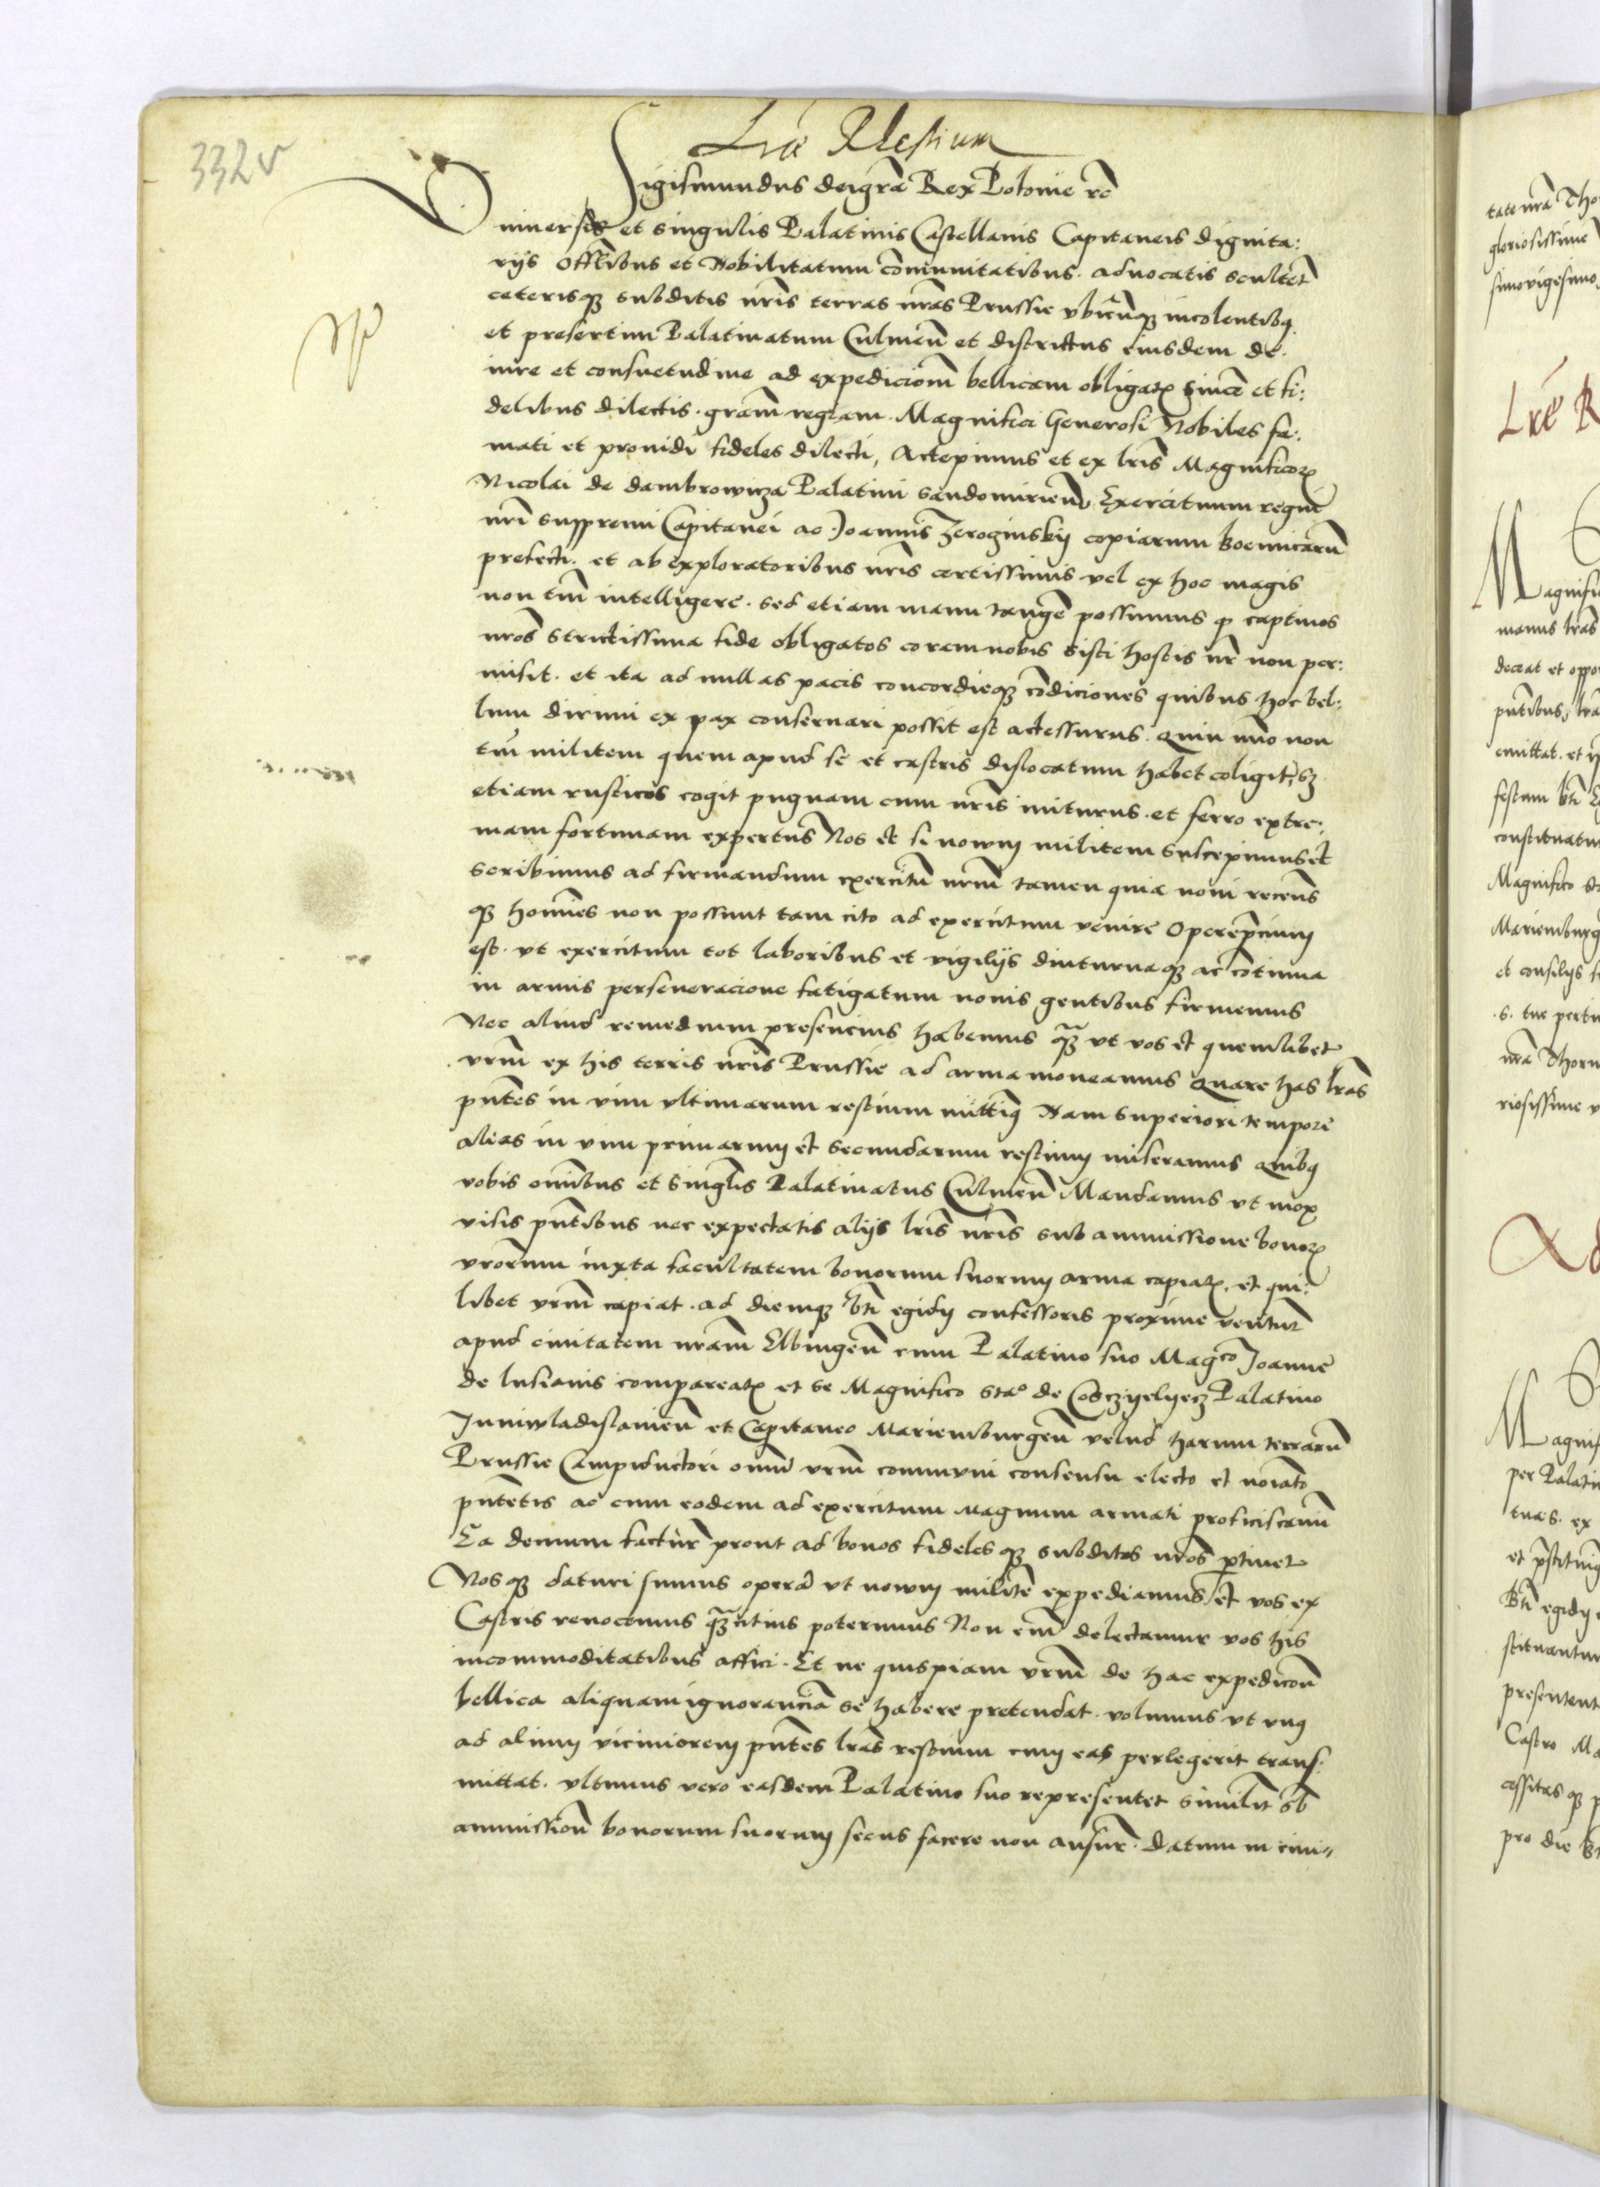 332v
Lrẽ Restium
Sigismundus dei grã Rex Polonie rc̃
Universis et singulis Palatinis Castellanis Capitaneis dignita:
rijs Offlibus et Nobilitatum cõmunitatibus. advocatis scultet̃
ceterisqȝ subditis nr̃is terras nr̃as Prussie vbicũqȝ incolentibȝ
et presertim Palatinatum Culmeñ et districtus eiusdem de
iure et consuetudine ad expedicionẽ bellicam obligatꝝ sincẽ et fi:
delibus dilectis. grãm regiam. Magnifici Generosi Nobiles fa:
mati et providi fideles dilecti, Accepimus et ex lrĩs Magnificoꝝ
Nicolai de dambrowicza Palatini sandomirieñ Exercituum regni
nr̃i suppremi Capitanei ac Joannis Zeroginskij copiarum boemicarũ
prefecti. et ab exploratoribus nr̃is certissimis vel ex hoc magis
non tm̃ intelligere. sed etiam manu tangẽ possumus qȝ captivos
nr̃os strictissima fide obligatos coram nobis sisti hostis nr̃ non per:
misit. et ita ad nullas pacis concordieqȝ cõdiciones quibus hoc bel:
lum dirimi ex pax conservari possit est accessurus. Quin imo non
tm̃ militem quem apud se et castris dislocatum habet coligit, sȝ
etiam rusticos cogit pugnam cum nr̃is initurus. et ferro extre:
mam fortunam expertus Nos et si novum militem suscepimus et
scribimus ad firmandum exercitũ nr̃m tamen quia novi recens
qȝ homĩes non possunt tam cito ad exercitum venire Operep̃cium
est. vt exercitum tot laboribus et vigilijs diuturnaqȝ ac cõtinua
in armis perseveracione fatigatum novis gentibus firmemus
Nec aliud remedium presencius habemus qȝ̃ vt vos et quemlibet
vrm̃ ex his terris nr̃is Prussie ad arma moveamus Quare has lrãs
pñtes in vim vltimarum restium mittimȝ Nam superiori tempore
alias in vim primarum et secundarum restium miseramus Quibȝ
vobis omĩbus et singl̃is Palatinatus Culmeñ Mandamus vt mox
visis pñtibus nec expectatis alijs lrĩs nr̃is sub ammissione bonoꝝ
vrorum iuxta facultatem bonorum suorum arma capiatꝭ. et qui:
libet vrm̃ capiat. ad diemqȝ bti egidij confessoris proxime ventur̃
apud civitatem nrãm Elbingeñ cum Palatino suo Magco Joanne
de lusianis compareatꝭ et se Magnifico Stao de Cosczyelyecz Palatino
Junivladislavieñ et Capitaneo Mariemburgeñ velud harum terrarũ
Prussie Campiductori omĩ vrm̃ communi consensu electo et noĩato
pñtetis ac cum eodem ad exercitum Magnum armati proficiscamĩ
Ea demum factur̃ prout ad bonos fidelesqȝ subditos nr̃os p̱tinet
Nosqȝ daturi sumus operã vt novum militẽ expediamus et vos ex
Castris revocemus qȝ̃ citius poterimus Non em̃ delectamur vos his
incommoditatibus affici. Et ne quispiam vrm̃ de hac expedicoñ
bellica aliquam ignoranciã se habere pretendat. volumus vt vnȝ
ad alium viciniorem pñtes lrãs restium cum eas perlegerit trans:
mittat. vltimus vero easdem Palatino suo representet similit̃ sb
ammissioñ bonorum suorum secus facere non ausur̃. Datum in civi